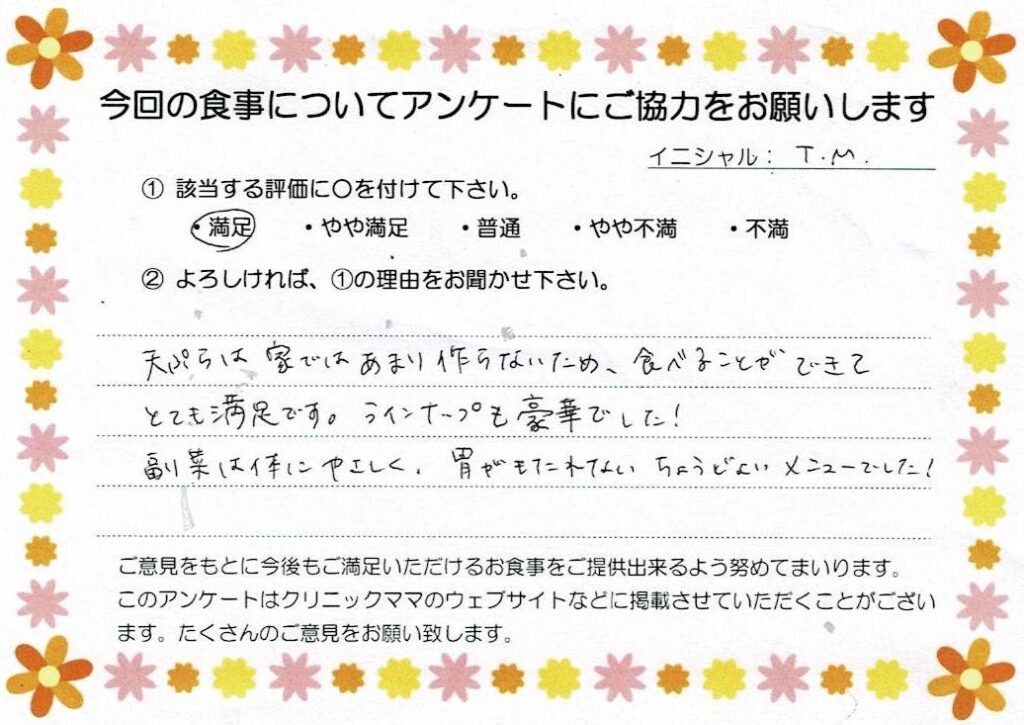 今回の食事についてアンケートにご協力をお願いします
イニシャル： T.M.
① 該当する評価に〇を付けて下さい。
・満足 ・やや満足 ・普通 ・やや不満 ・不満
② よろしければ、①の理由をお聞かせ下さい。
天ぷらは家ではあまり作らないため、食べることができて
とても満足です。ラインナップも豪華でした！
副菜は体にやさしく、胃がもたれない ちょうどよいメニューでした！
ご意見をもとに今後もご満足いただけるお食事をご提供出来るよう努めてまいります。
このアンケートはクリニックママのウェブサイトなどに掲載させていただくことがござい
ます。たくさんのご意見をお願い致します。